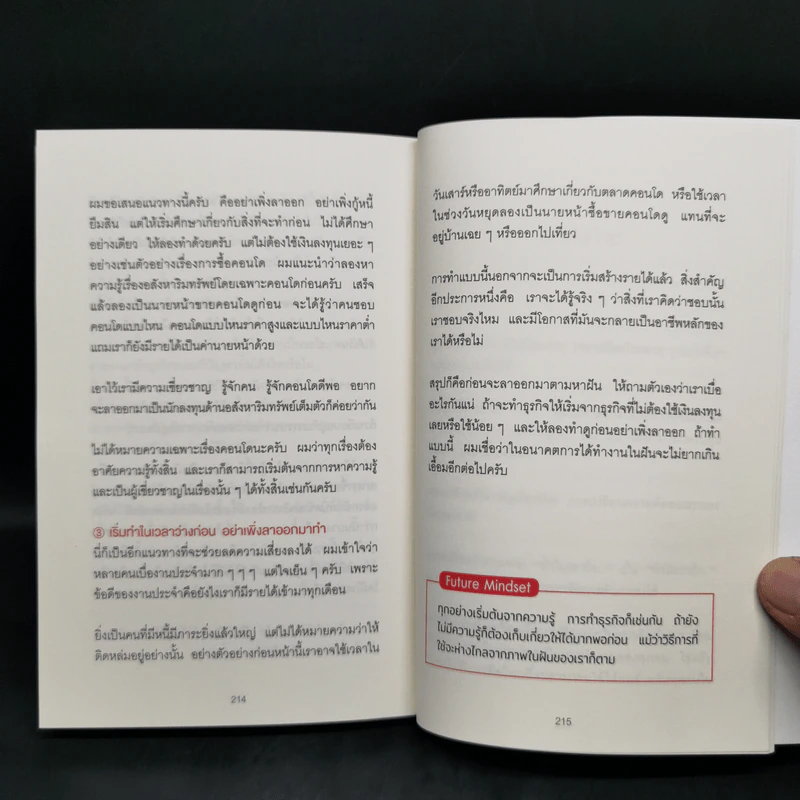 ผมขอเสนอแนวทางนี้ครับ คืออย่าเพิ่งลาออก อย่าเพิ่งกู้หนี้
ยืมสิน แต่ให้เริ่มศึกษาเกี่ยวกับสิ่งที่จะทำก่อน ไม่ได้ศึกษา
อย่างเดียว ให้ลองทำด้วยครับ แต่ไม่ต้องใช้เงินลงทุนเยอะ ๆ
อย่างเช่นตัวอย่างเรื่องการซื้อคอนโด ผมแนะนำว่าลองหา
ความรู้เรื่องอสังหาริมทรัพย์โดยเฉพาะคอนโดก่อนครับ เสร็จ
แล้วลองเป็นนายหน้าขายคอนโดดูก่อน จะได้รู้ว่าคนชอบ
คอนโดแบบไหน คอนโดแบบไหนราคาสูงและแบบไหนราคาต่ำ
แถมเราก็ยังมีรายได้เป็นค่านายหน้าด้วย
เอาไว้เรามีความเชี่ยวชาญ รู้จักคน รู้จักคอนโดดีพอ อยาก
จะลาออกมาเป็นนักลงทุนด้านอสังหาริมทรัพย์เต็มตัวก็ค่อยว่ากัน
ไม่ได้หมายความเฉพาะเรื่องคอนโดนะครับ ผมว่าทุกเรื่องต้อง
อาศัยความรู้ทั้งสิ้น และเราก็สามารถเริ่มต้นจากการหาความรู้
และเป็นผู้เชี่ยวชาญในเรื่องนั้น ๆ ได้ทั้งสิ้นเช่นกันครับ
③ เริ่มทำในเวลาว่างก่อน อย่าเพิ่งลาออกมาทำ
นี่ก็เป็นอีกแนวทางที่จะช่วยลดความเสี่ยงลงได้ ผมเข้าใจว่า
หลายคนเบื่องานประจำมาก ๆ ๆ ๆ แต่ใจเย็น ๆ ครับ เพราะ
ข้อดีของงานประจำคือยังไงเราก็มีรายได้เข้ามาทุกเดือน
ยิ่งเป็นคนที่มีหนี้มีภาระยิ่งแล้วใหญ่ แต่ไม่ได้หมายความว่าให้
ติดหล่มอยู่อย่างนั้น อย่างตัวอย่างก่อนหน้านี้เราอาจใช้เวลาใน
214
วันเสาร์หรืออาทิตย์มาศึกษาเกี่ยวกับตลาดคอนโด หรือใช้เวลา
ในช่วงวันหยุดลองเป็นนายหน้าซื้อขายคอนโดดู แทนที่จะ
อยู่บ้านเฉย ๆ หรือออกไปเที่ยว
การทำแบบนี้นอกจากจะเป็นการเริ่มสร้างรายได้แล้ว สิ่งสำคัญ
อีกประการหนึ่งคือ เราจะได้รู้จริง ๆ ว่าสิ่งที่เราคิดว่าชอบนั้น
เราชอบจริงไหม และมีโอกาสที่มันจะกลายเป็นอาชีพหลักของ
เราได้หรือไม่
สรุปก็คือก่อนจะลาออกมาตามหาฝัน ให้ถามตัวเองว่าเราเบื่อ
อะไรกันแน่ ถ้าจะทำธุรกิจให้เริ่มจากธุรกิจที่ไม่ต้องใช้เงินลงทุน
เลยหรือใช้น้อย ๆ และให้ลองทำดูก่อนอย่าเพิ่งลาออก ถ้าทำ
แบบนี้ ผมเชื่อว่าในอนาคตการได้ทำงานในฝันจะไม่ยากเกิน
เอื้อมอีกต่อไปครับ
Future Mindset
ทุกอย่างเริ่มต้นจากความรู้ การทำธุรกิจก็เช่นกัน ถ้ายัง
ไม่มีความรู้ก็ต้องเก็บเกี่ยวให้ได้มากพอก่อน แม้ว่าวิธีการที่
ใช้จะห่างไกลจากภาพในฝันของเราก็ตาม
215